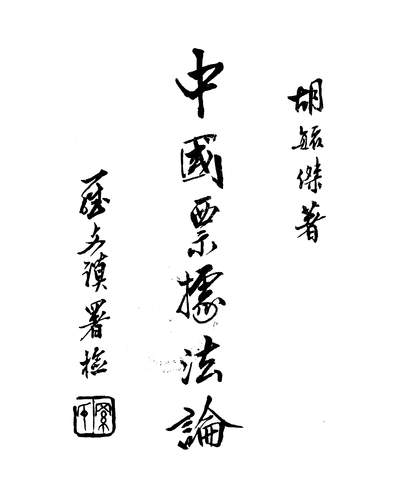 胡毓傑著
中國票據法論
羅文謨署檢